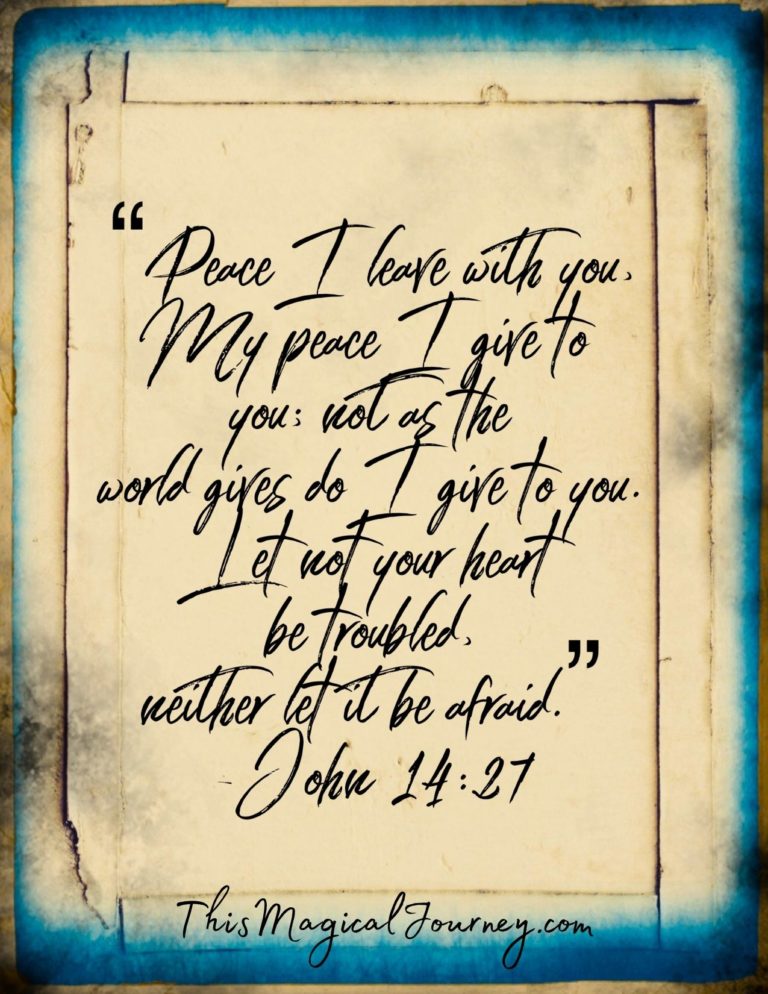 “Peace I leave with you,
My peace I give to
you; not as the
world gives do I give to you.
Let not your heart
be troubled,
neither let it be afraid.”
- John 14:27
ThisMagicalJourney.com